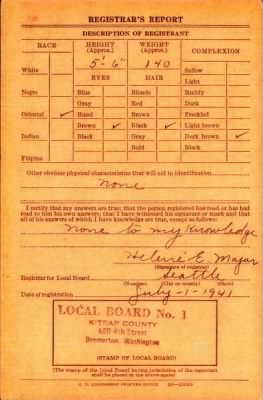 REGISTRAR'S REPORT
DESCRIPTION OF REGISTRANT
RACE HEIGHT (Approx.) WEIGHT (Approx.) COMPLEXION
White 5' 6" 140 Sallow
EYES HAIR Light
Negro Blue Blonde Ruddy
Gray Red Dark
Oriental ✓ Hazel Brown Freckled
Brown ✓ Black ✓ Light brown
Indian Black Gray Dark brown ✓
Bald Black
Filipino
Other obvious physical characteristics that will aid in identification
None
I certify that my answers are true; that the person registered has read or has had
read to him his own answers; that I have witnessed his signature or mark and that
all of his answers of which I have knowledge are true, except as follows:
None to my Knowledge
Helene E. Majar
(Signature of registrar)
Registrar for Local Board Seattle
(Number) (City or county) (State)
Date of registration July-1-1941
LOCAL BOARD No. 1
KITSAP COUNTY
4th Street
Bremerton, Washington
(STAMP OF LOCAL BOARD)
(The stamp of the Local Board having jurisdiction of the registrant
shall be placed in the above space)
U. S. GOVERNMENT PRINTING OFFICE